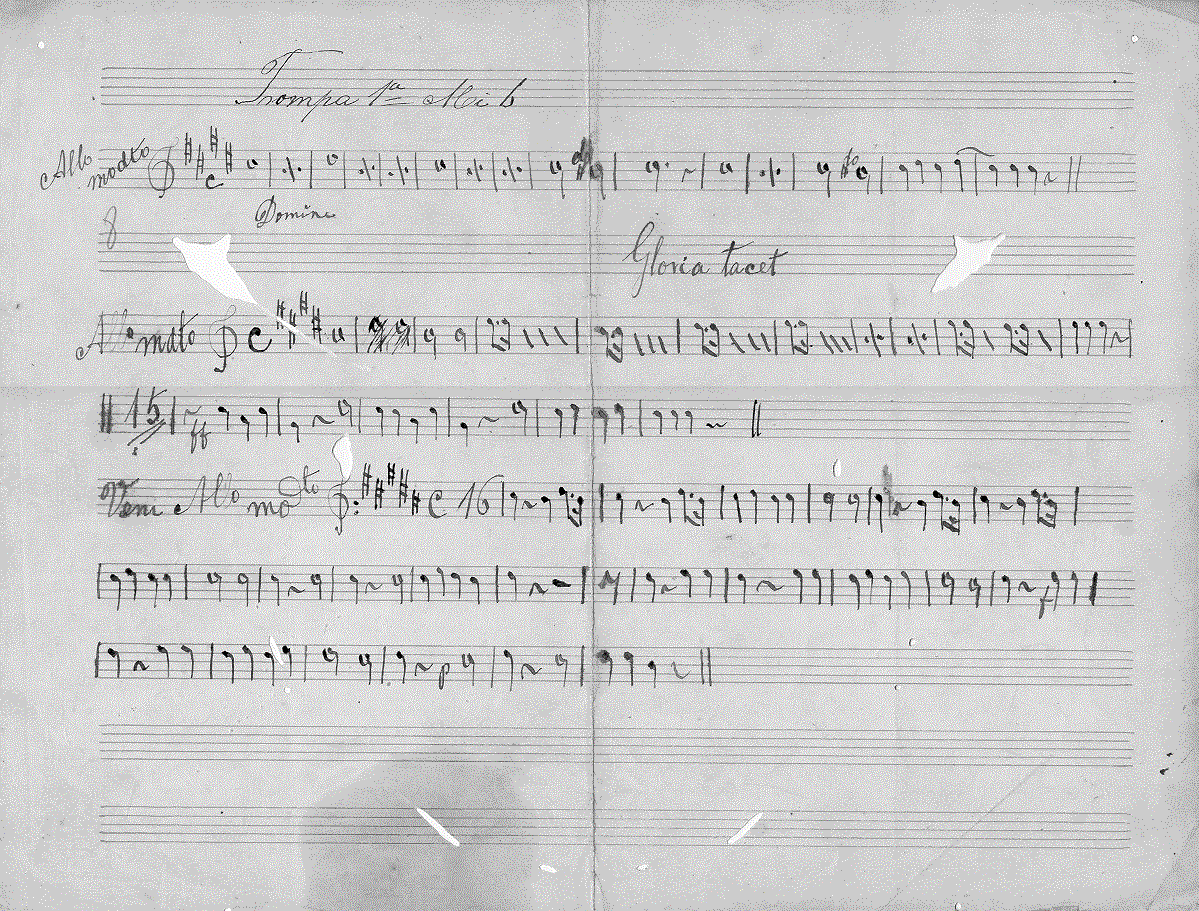 Trompa 1ª Mi b
Allo modto
Domine
8
Gloria tacet
Allo mdto
15
ff
Veni Allo modto 16
f
p